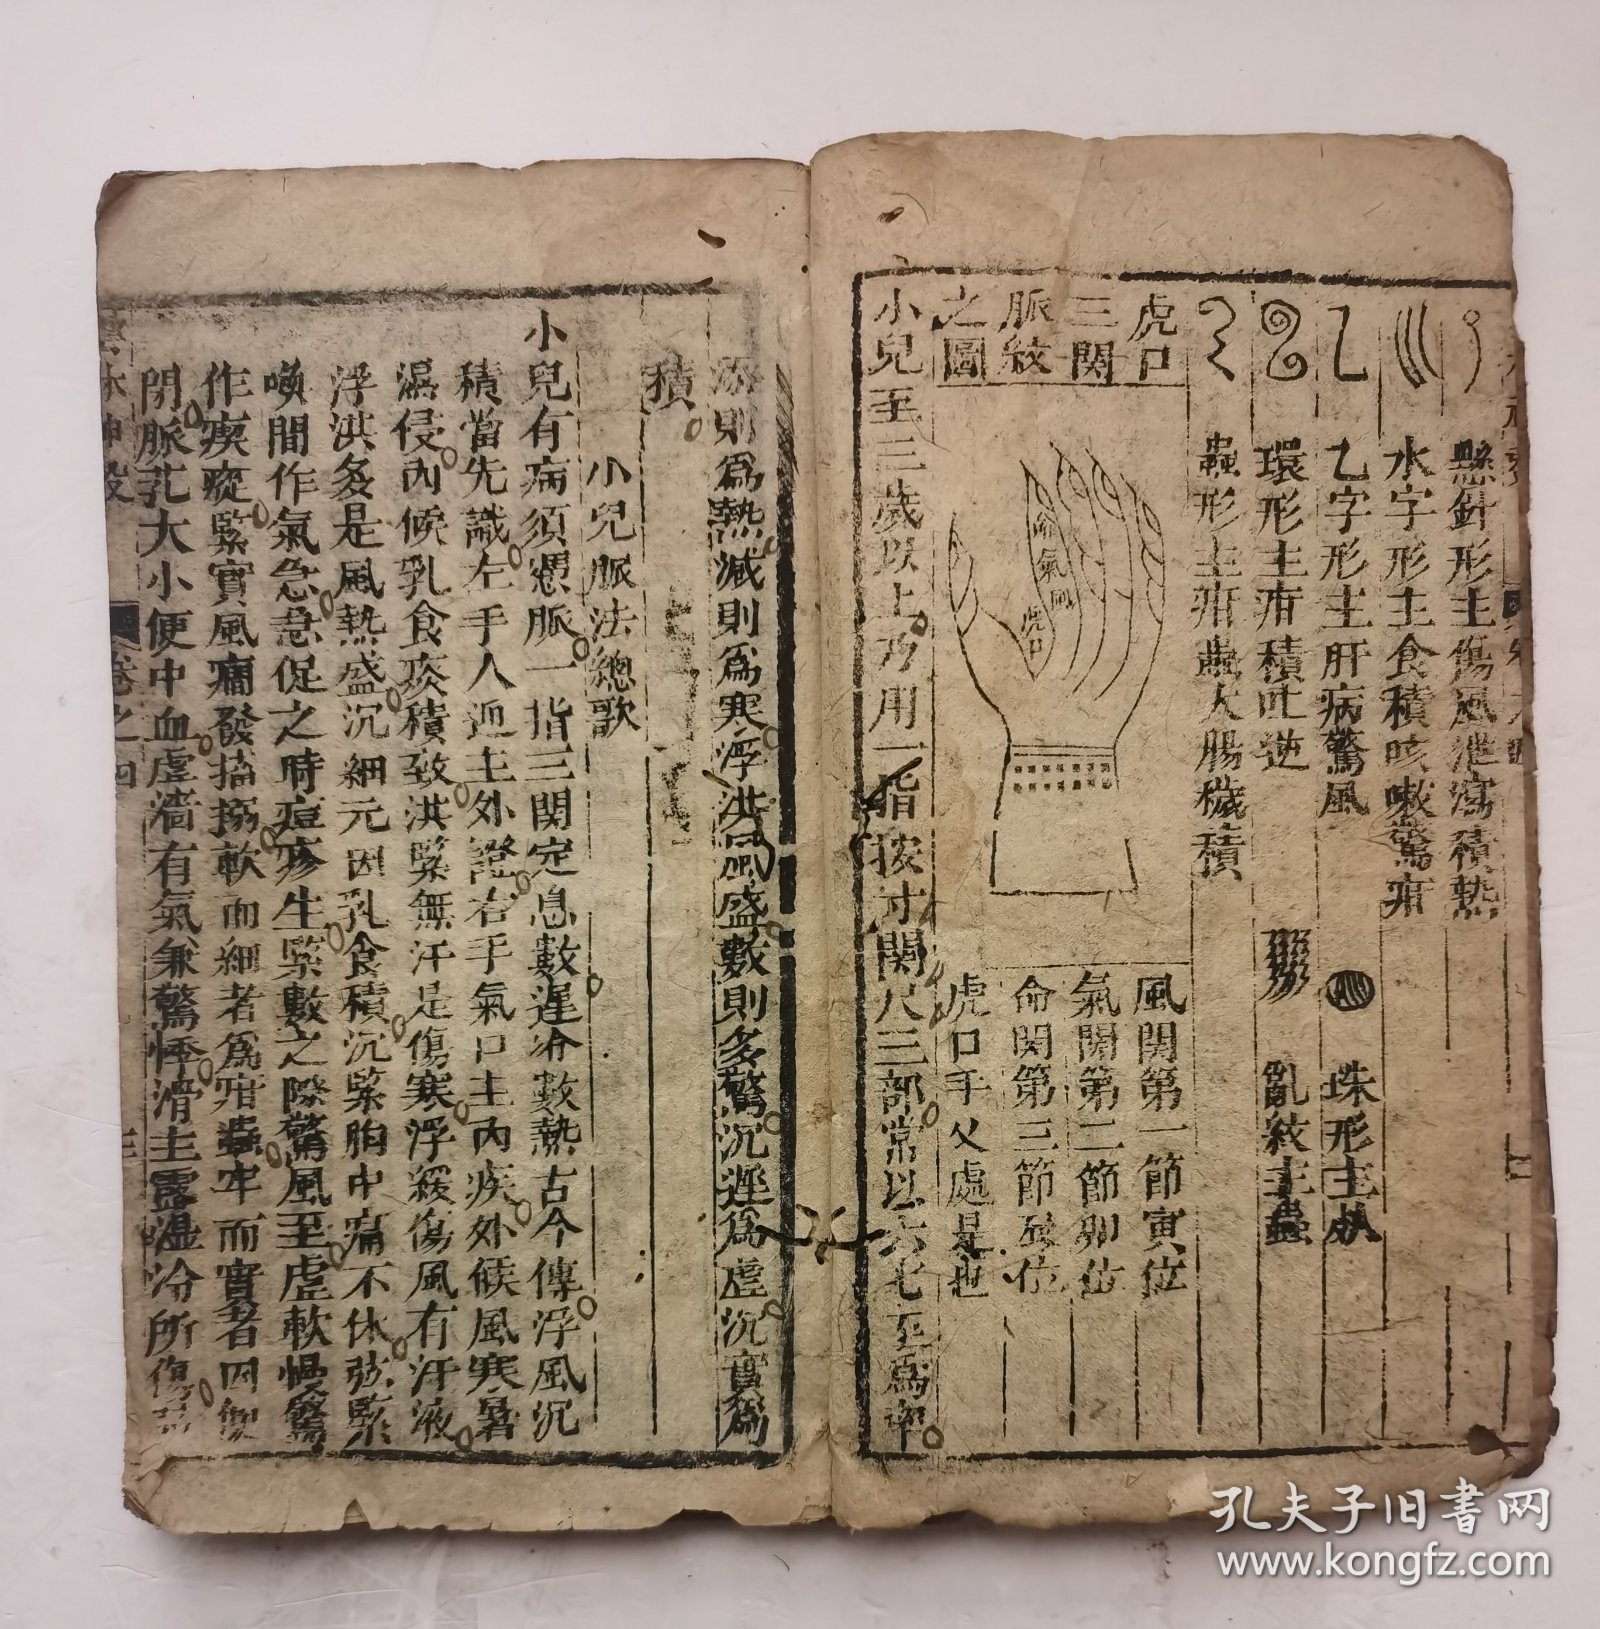 懸針形主傷風泄瀉積熱
水字形主食積咳嗽驚疳
乙字形主肝病驚風
珠形主死
環形主疳積吐逆
亂紋主蟲
蟲形主疳蟲大腸穢積
虎口
三関
脈紋
之圖
命氣風
虎口
風関第一節寅位
氣関第二節卯位
命関第三節辰位
虎口手乂處是也
小兒至三歲以上乃用一指按寸関尺三部常以六七至為率
添則為熱減則為寒浮洪風盛數則多驚沉遲為虛沉實為
積
小兒脈法總歌
小兒有病須憑脈一指三関定息數遲冷數熱古今傳浮風沉
積當先識左手人迎主外證右手氣口主內疾外候風寒暑
濕侵內候乳食痰積致洪緊無汗是傷寒浮緩傷風有汗液
浮洪多是風熱盛沉細元因乳食積沉緊腹中痛不休弦緊
喉間作氣急急促之時痘疹生緊數之際驚風至虛軟慢驚
作瘈瘲緊實風癇發搐搦軟而細者為疳蟲牢而實者因便
閉脈芤大小便中血虛濡有氣兼驚悸滑主露濕冷所傷弦
卷之四
孔夫子旧书网
www.kongfz.com